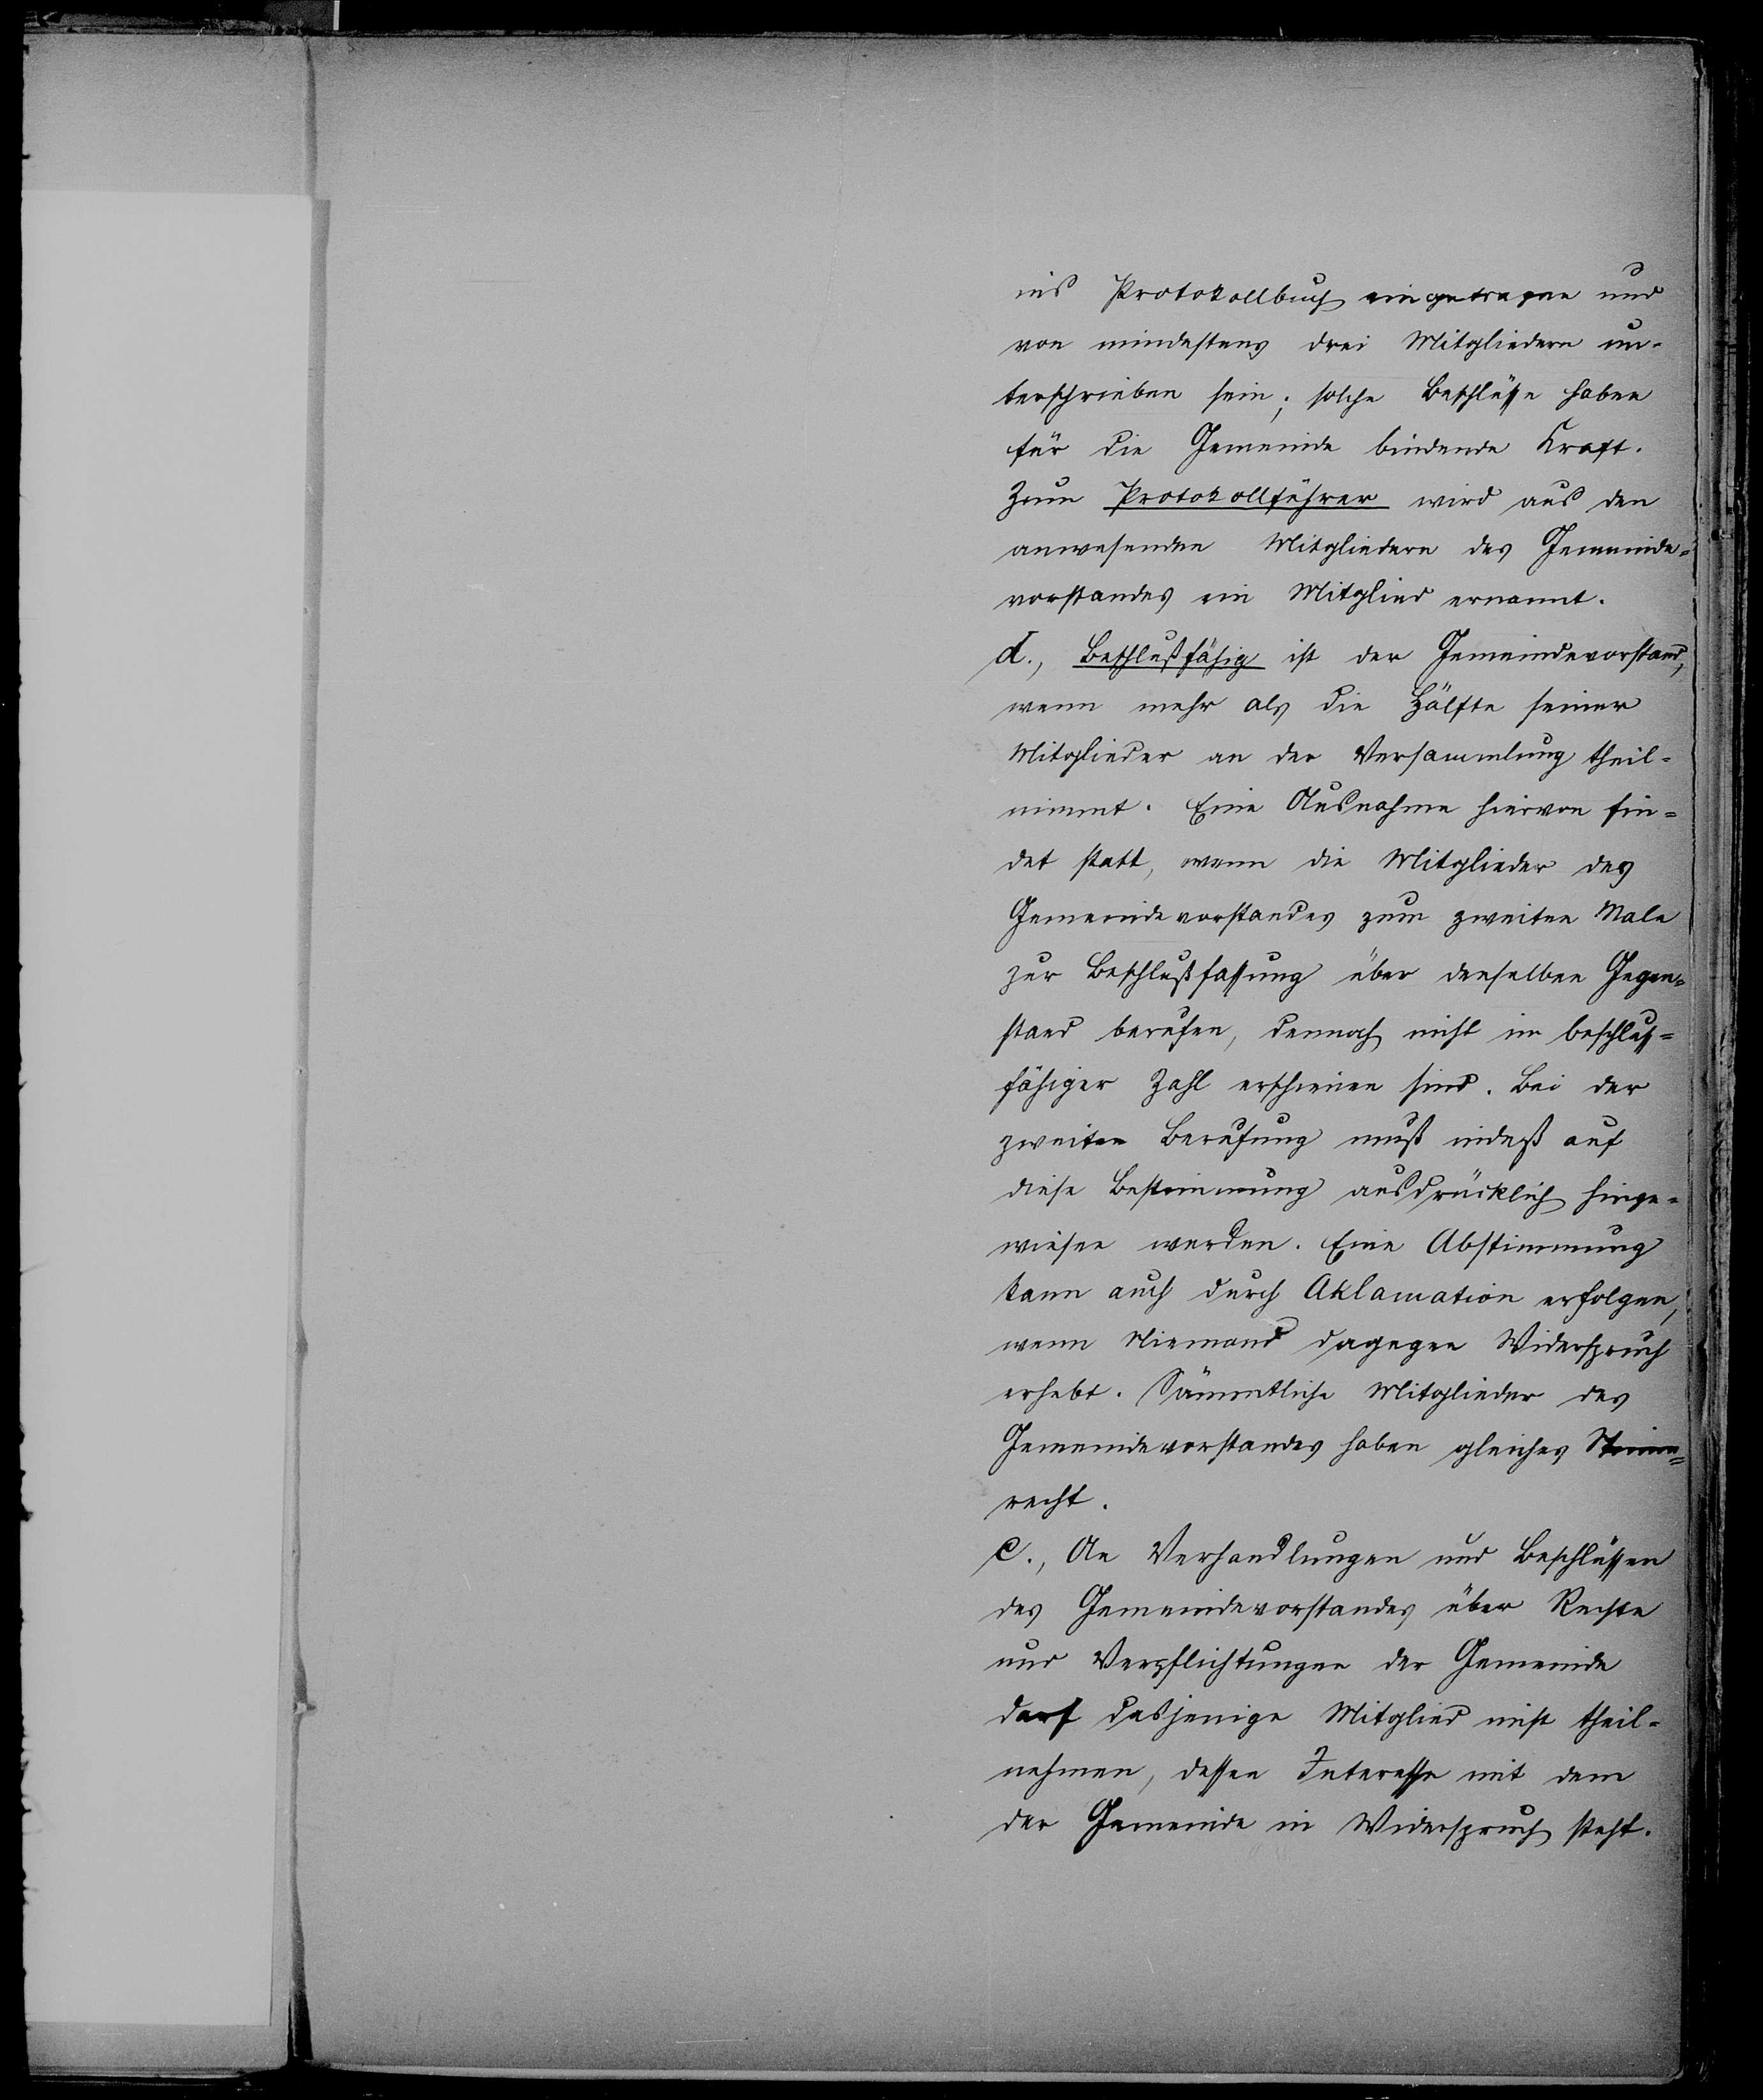 ins Protokollbuch eingetragen und
von mindestens drei Mitgliedern un-
terschrieben sein; solche Beschlüsse haben
für die Gemeinde bindende Kraft.
Zum Protokollführer wird aus den
anwesenden Mitgliedern des Gemeinde-
vorstandes ein Mitglied ernannt.
d., Beschlußfähig ist der Gemeindevorstand,
wenn mehr als die Hälfte seiner
Mitglieder an der Versammlung theil-
nimmt. Eine Ausnahme hiervon fin-
det statt, wenn die Mitglieder des
Gemeindevorstandes zum zweiten Male
zur Beschlußfassung über denselben Gegen-
stand berufen, dennoch nicht in beschluß-
fähiger Zahl erschienen sind. Bei der
zweiten Berufung muß indeß auf
diese Bestimmung ausdrücklich hinge-
wiesen werden. Eine Abstimmung
kann auch durch Aklamation erfolgen,
wenn Niemand dagegen Widerspruch
erhebt. Sämmtliche Mitglieder des
Gemeindevorstandes haben gleiches Stimm-
recht.
e., An Verhandlungen und Beschlüssen
des Gemeindevorstandes über Rechte
und Verpflichtungen der Gemeinde
darf dasjenige Mitglied nicht theil-
nehmen, dessen Interesse mit dem
der Gemeinde in Widerspruch steht.